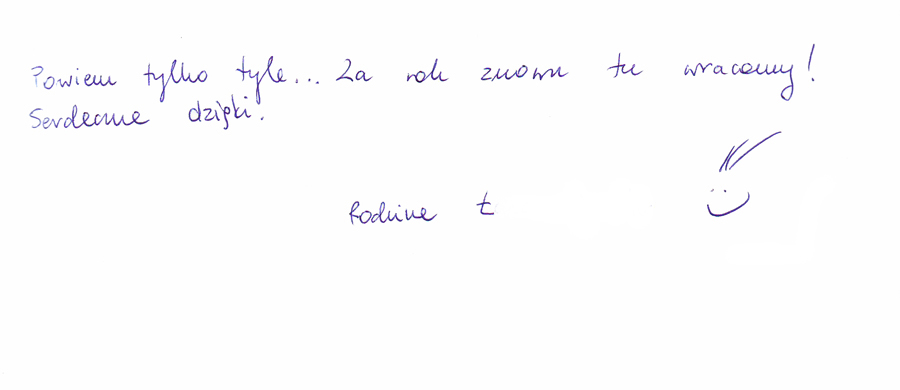 Powiem tylko tyle... Za rok znowu tu wracamy!
Serdecznie dzięki!
Rodzina Ł